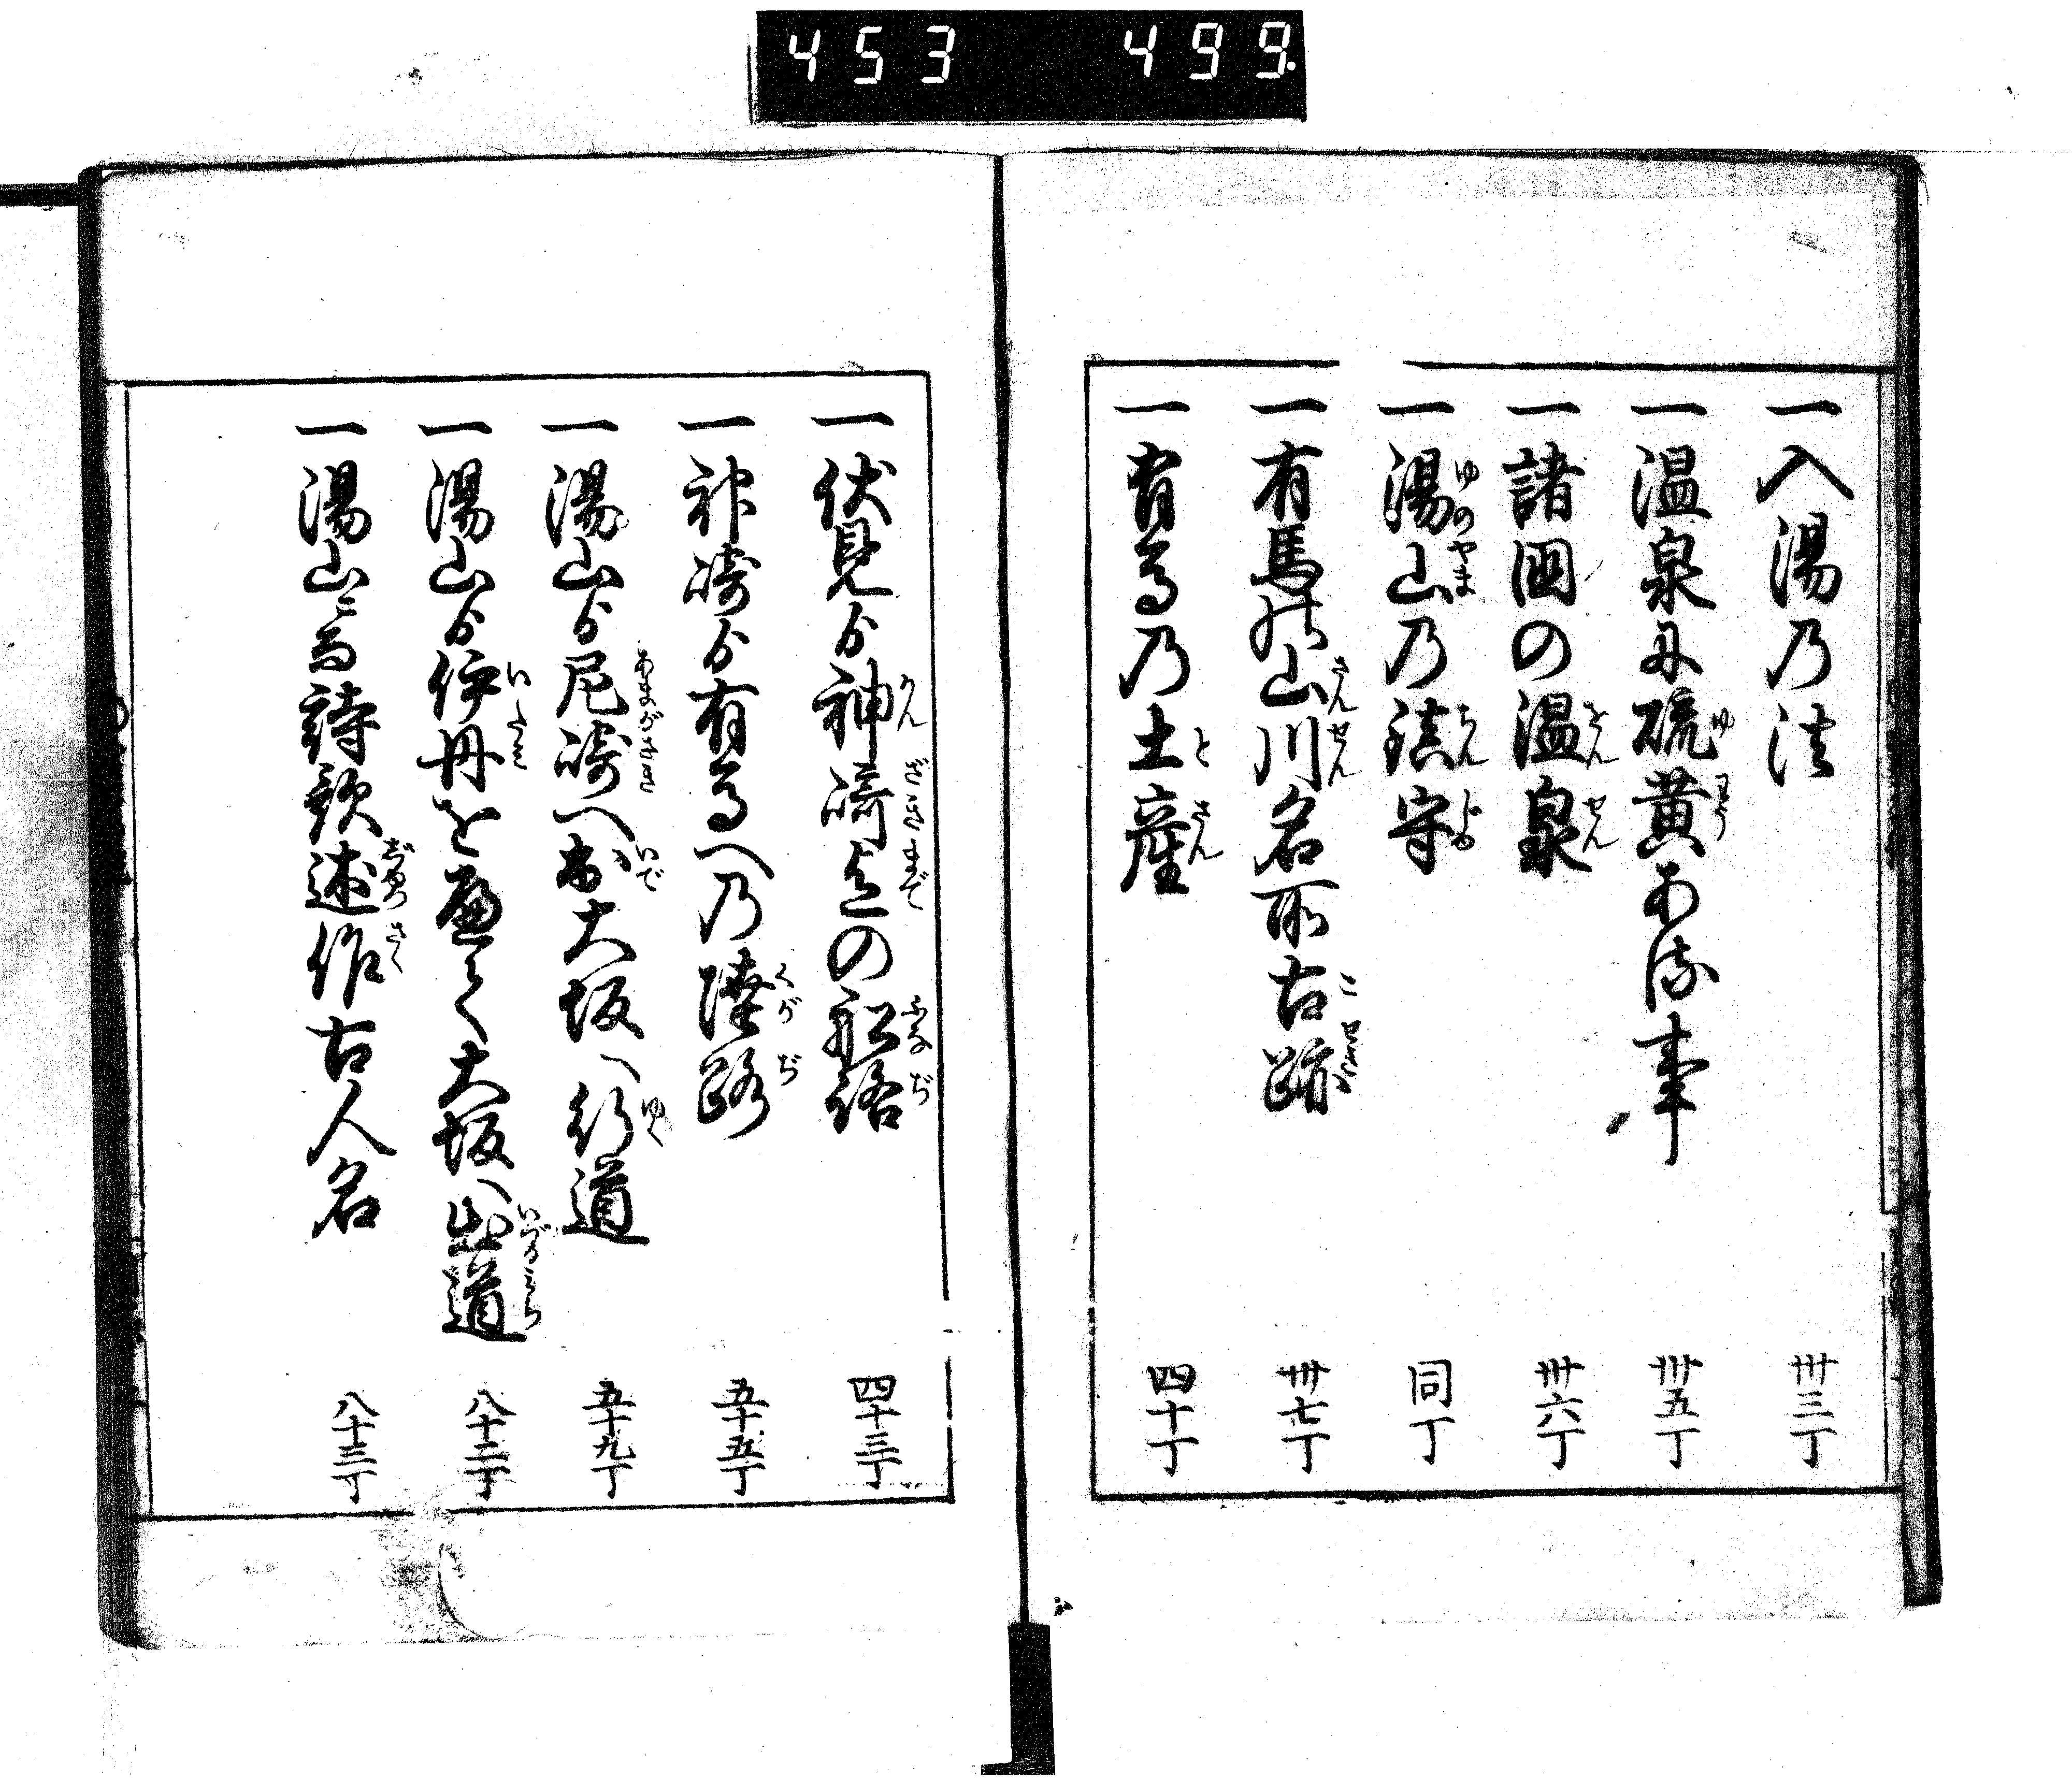 453 499
一入湯乃法 丗三丁
一温泉に硫黄ある事 丗五丁
一諸国の温泉 丗六丁
一湯山乃鎮守 同丁
一有馬の山川名所古跡 丗七丁
一有馬乃土産 四十丁
一伏見ゟ神崎迄の船路 四十三丁
一神崎ゟ有馬へ乃陸路 五十五丁
一湯山ゟ尼崎へ出大坂へ行道 五十九丁
一湯山ゟ伊丹を歴て大坂へ出道 八十二丁
一湯山ニ而詩歌述作古人名 八十三丁